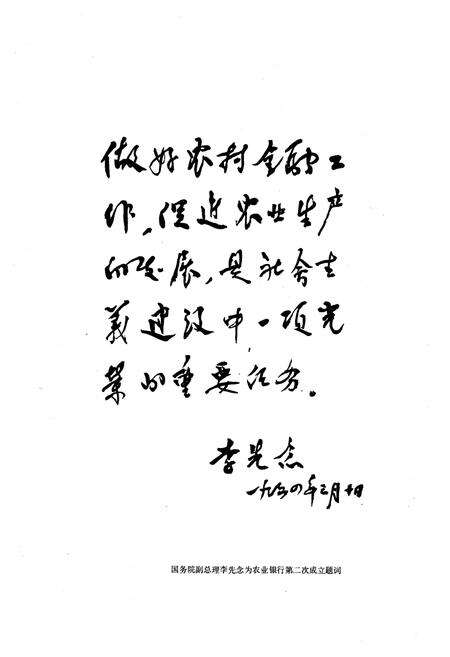 做好农村金融工
作，促进农业生产
的发展，是社会主
义建设中一项光
荣的重要任务。
李先念
一九六四年三月十日
国务院副总理李先念为农业银行第二次成立题词